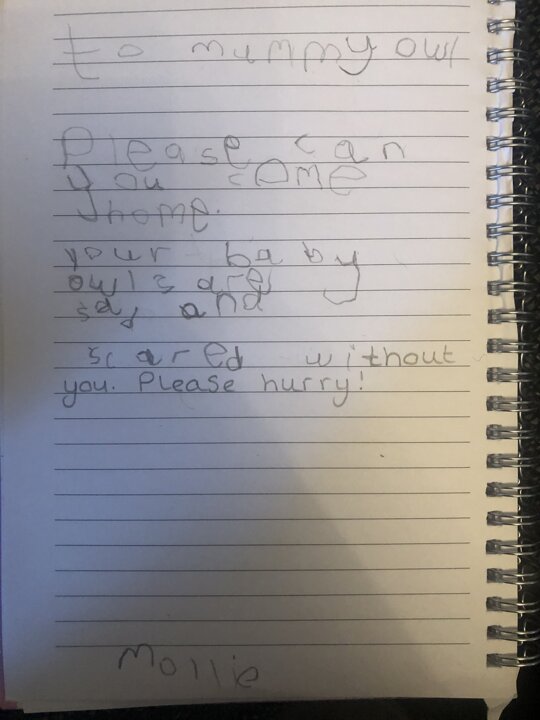 to mummy owl
Please can
you come
home.
your baby
owls are
sad and
scared without
you. Please hurry!
Mollie